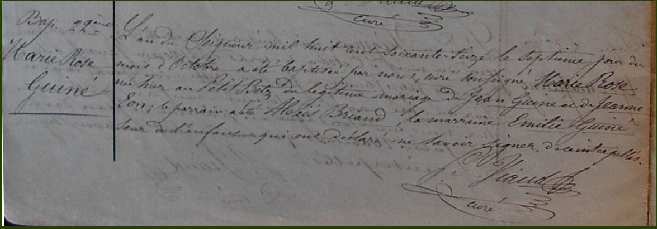 curé
Bap. 22ème
Marie Rose
Guiné
L'an du Seigneur mil huit cent soixante-treize le septième jour du
mois d'Octobre a été baptisée par nous, curé soussigné, Marie Rose
née hier au Petit Poste du légitime mariage de Jean Guiné et de Jeanne
le parrain a été Alexis Briand, la marraine Emilie Guiné
sœur de l'enfant qui ont déclaré ne savoir signer, de ce interpellés.
curé